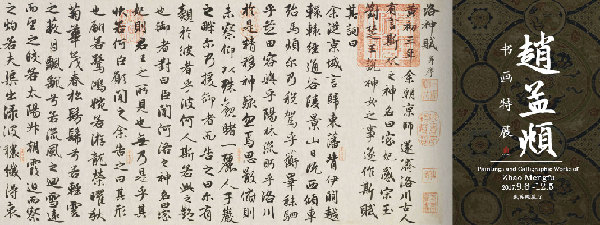 洛神賦 并序
黃初三年余朝京師還濟洛川古人
有言斯水之神名曰宓妃感宋玉
對楚王說神女之事遂作斯賦
其詞曰
余從京域言歸東藩背伊闕越
轘轅經通谷陵景山日既西傾車
殆馬煩爾乃稅駕乎蘅皋秣駟
乎芝田容與乎陽林流眄乎洛川
於是精移神駭忽焉思散俯則
未察仰以殊觀睹一麗人于巖
之畔爾乃援御者而告之曰爾有
覿於彼者乎彼何人斯若此之艷
也御者對曰臣聞河洛之神名曰宓
妃則君王之所見也無乃是乎其
狀若何臣願聞之余告之曰其形
也翩若驚鴻婉若游龍榮曜秋
菊華茂春松髣髴兮若輕雲
之蔽月飄颻兮若流風之迴雪遠
而望之皎若太陽升朝霞迫而察
之灼若夫渠出淥波穠纖得衷
趙孟頫
书画特展
Painting and Calligraphic Works of
Zhao Mengfu
2017.9.6-12.5